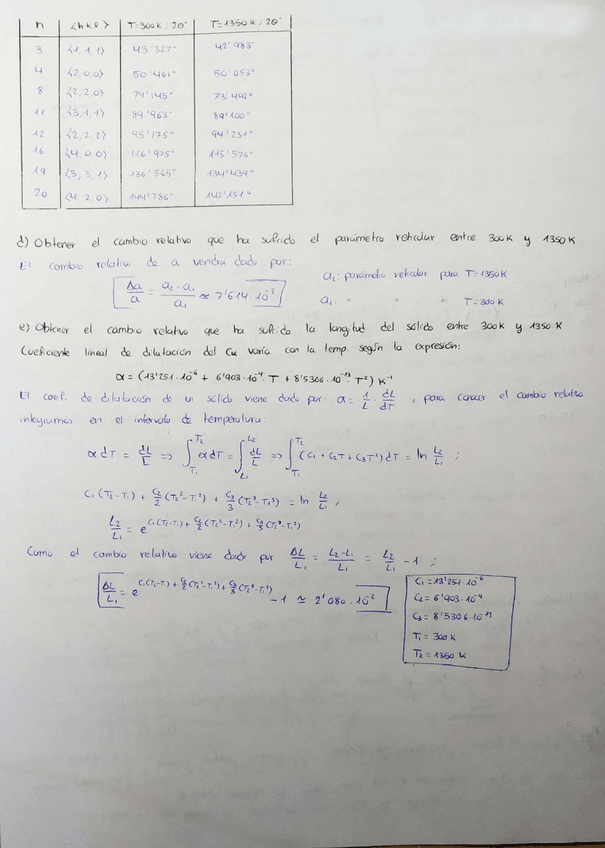 n <h k l> T=300K; 2θ° T=1350K; 2θ°
3 <1,1,1> 43'327° 42'983°
4 <2,0,0> 50'461° 50'053°
8 <2,2,0> 74'145° 73'492°
11 <3,1,1> 89'963° 89'100°
12 <2,2,2> 95'175° 94'231°
16 <4,0,0> 116'975° 115'576°
19 <3,3,1> 136'565° 134'439°
20 <4,2,0> 144'786° 142'151°
d) Obtener el cambio relativo que ha sufrido el parámetro reticular entre 300K y 1350K
El cambio relativo de a vendrá dado por:
Δa/a = (a₂-a₁)/a₁ ≈ 7'614·10⁻³
a₂: parámetro reticular para T=1350K
a₁: " " " T=300K
e) Obtener el cambio relativo que ha sufrido la longitud del sólido entre 300K y 1350K
Coeficiente lineal de dilatación del Cu varía con la temp. según la expresión:
α = (13'251·10⁻⁶ + 6'903·10⁻⁹·T + 8'5306·10⁻¹³·T²) K⁻¹
El coef. de dilatación de un sólido viene dado por: α = 1/L · dL/dT, para conocer el cambio relativo
integramos en el intervalo de temperatura:
α dT = dL/L => ∫_T₁^T₂ α dT = ∫_L₁^L₂ dL/L => ∫_T₁^T₂ (C₁ + C₂T + C₃T²) dT = ln L₂/L₁ ;
C₁(T₂-T₁) + C₂/2 (T₂²-T₁²) + C₃/3 (T₂³-T₁³) = ln L₂/L₁ ;
L₂/L₁ = e^(C₁(T₂-T₁) + C₂/2 (T₂²-T₁²) + C₃/3 (T₂³-T₁³))
Como el cambio relativo viene dado por ΔL/L₁ = (L₂-L₁)/L₁ = L₂/L₁ - 1 ;
ΔL/L₁ = e^(C₁(T₂-T₁) + C₂/2 (T₂²-T₁²) + C₃/3 (T₂³-T₁³)) - 1 ≈ 2'080·10⁻²
C₁ = 13'251·10⁻⁶
C₂ = 6'903·10⁻⁹
C₃ = 8'5306·10⁻¹³
T₁ = 300K
T₂ = 1350 K